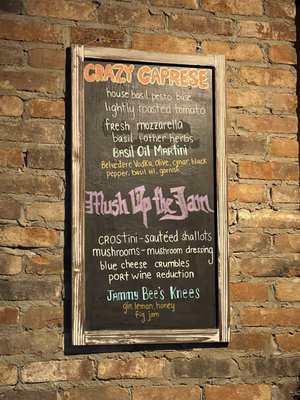 CRAZY CAPRESE
house basil pesto base
lightly roasted tomato
fresh mozzarella
basil + other herbs
BASIL OIL MARTINI
Belvedere Vodka, olive, cynar, black
pepper, basil oil, garnish
Mush Up the Jam
CROSTINI - sautéed shallots
mushrooms - mushroom dressing
blue cheese crumbles
PORT WINE REDUCTION
JAMMY BEE'S KNEES
gin, lemon, honey
fig jam